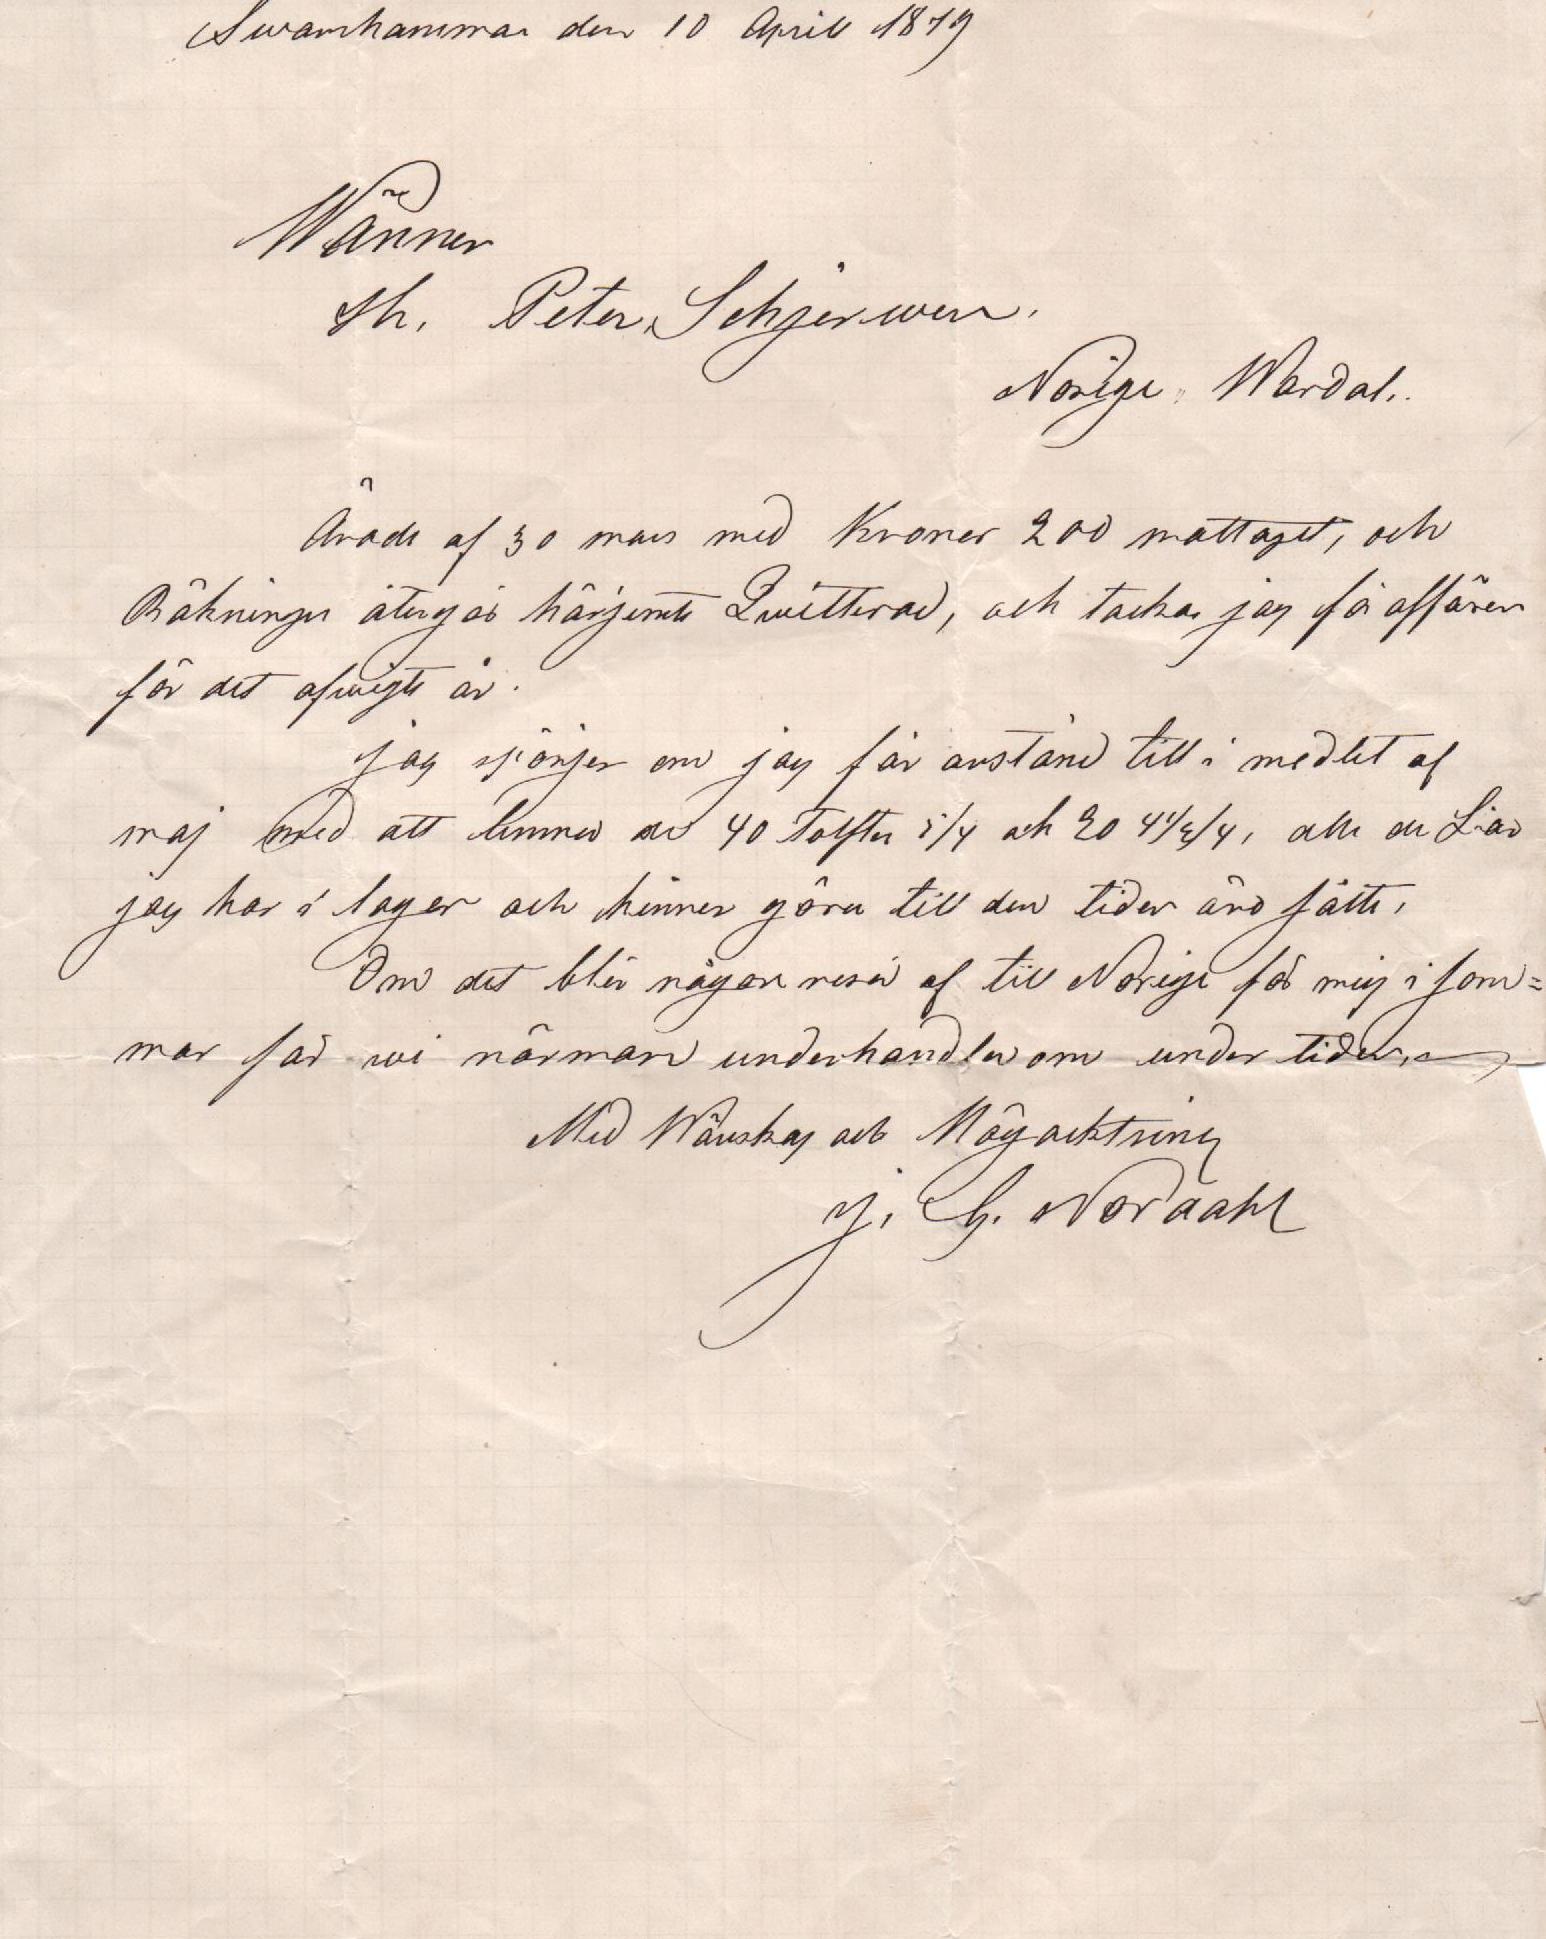 Swarnhammar den 10 April 1879
Wänner
Hr. Peter Schjerwen.
Norige. Wardal.
Ärade af 30 mars med Kroner 200 mottaget, och
Räkningen återgår härjemte Qwitterad, och tackar jag för affären
för det afwigte år.
jag spörjer om jag får anstånd till i medlet af
maj med att lemna de 40 tolfter 5/4 och 20 4 1/2/4, alla de Liar
jag har i lager och hinner göra till den tiden äro sålte,
Om det blir någon resa af till Norige för mig i som=
mar får wi närmare underhandla om under tiden,
Med Wänskap och Högacktning
J. G. Nordahl